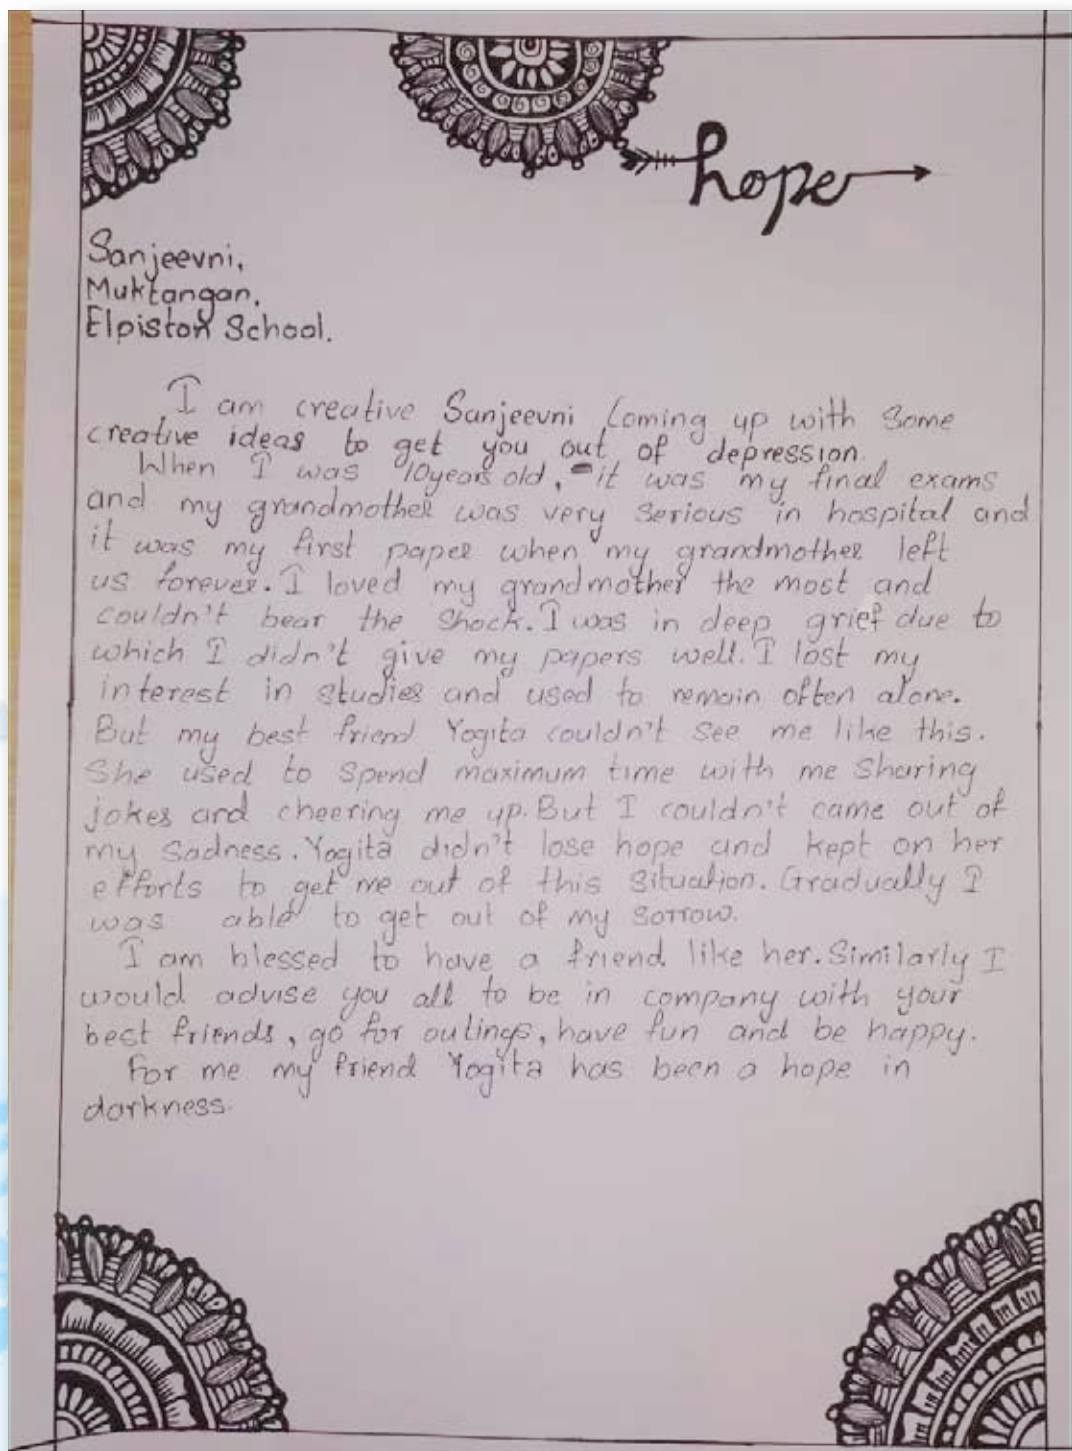 hope
Sanjeevni,
Muktangan,
Elpiston School.
I am creative Sanjeevni coming up with some
creative ideas to get you out of depression.
When I was 10years old, it was my final exams
and my grandmother was very serious in hospital and
it was my first paper when my grandmother left
us forever. I loved my grandmother the most and
couldn't bear the shock. I was in deep grief due to
which I didn't give my papers well. I lost my
interest in studies and used to remain often alone.
But my best friend Yogita couldn't see me like this.
She used to spend maximum time with me sharing
jokes and cheering me up. But I couldn't came out of
my sadness. Yogita didn't lose hope and kept on her
efforts to get me out of this situation. Gradually I
was able to get out of my sorrow.
I am blessed to have a friend like her. Similarly I
would advise you all to be in company with your
best friends, go for outings, have fun and be happy.
For me my friend Yogita has been a hope in
darkness.